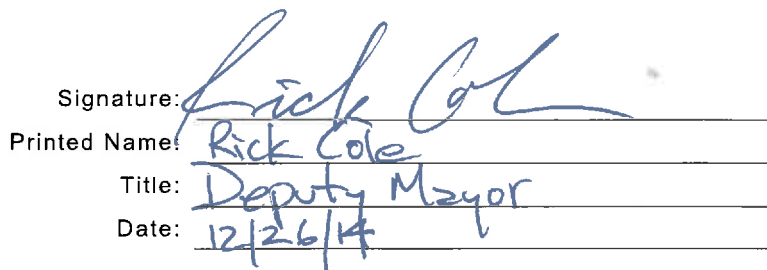 Signature: Rick Cole
Printed Name: Rick Cole
Title: Deputy Mayor
Date: 12/26/14